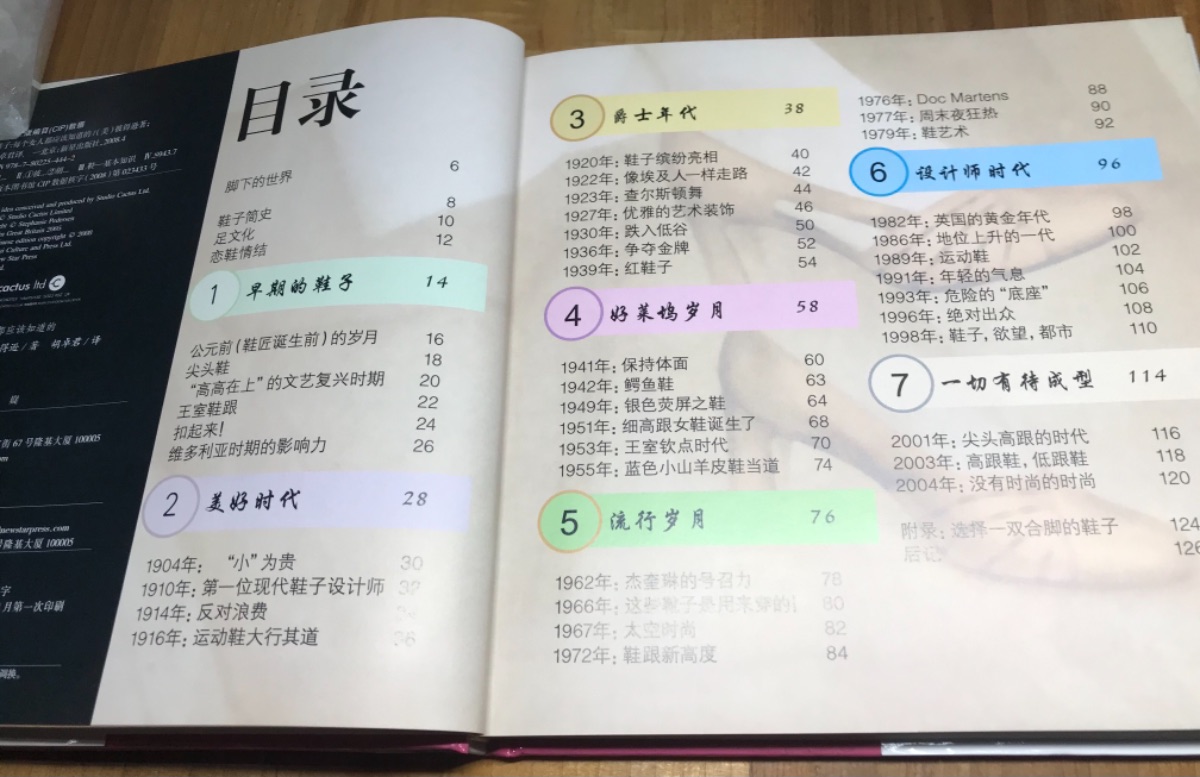 目录
脚下的世界 6
鞋子简史 8
足文化 10
恋鞋情结 12
1 早期的鞋子 14
公元前(鞋匠诞生前)的岁月 16
尖头鞋 18
“高高在上”的文艺复兴时期 20
王室鞋跟 22
扣起来! 24
维多利亚时期的影响力 26
2 美好时代 28
1904年: “小”为贵 30
1910年: 第一位现代鞋子设计师 32
1914年: 反对浪费
1916年: 运动鞋大行其道 36
3 爵士年代 38
1920年: 鞋子缤纷亮相 40
1922年: 像埃及人一样走路 42
1923年: 查尔斯顿舞 44
1927年: 优雅的艺术装饰 46
1930年: 跌入低谷 50
1936年: 争夺金牌 52
1939年: 红鞋子 54
4 好莱坞岁月 58
1941年: 保持体面 60
1942年: 鳄鱼鞋 63
1949年: 银色荧屏之鞋 64
1951年: 细高跟女鞋诞生了 68
1953年: 王室钦点时代 70
1955年: 蓝色小山羊皮鞋当道 74
5 流行岁月 76
1962年: 杰奎琳的号召力 78
1966年: 这些靴子是用来穿的! 80
1967年: 太空时尚 82
1972年: 鞋跟新高度 84
1976年: Doc Martens 88
1977年: 周末夜狂热 90
1979年: 鞋艺术 92
6 设计师时代 96
1982年: 英国的黄金年代 98
1986年: 地位上升的一代 100
1989年: 运动鞋 102
1991年: 年轻的气息 104
1993年: 危险的“底座” 106
1996年: 绝对出众 108
1998年: 鞋子,欲望,都市 110
7 一切有待成型 114
2001年: 尖头高跟的时代 116
2003年: 高跟鞋,低跟鞋 118
2004年: 没有时尚的时尚 120
附录: 选择一双合脚的鞋子 124
后记 126
cactus ltd
街 67 号隆基大厦 100005
newstarpress.com
隆基大厦 100005
月第一次印刷
调换。